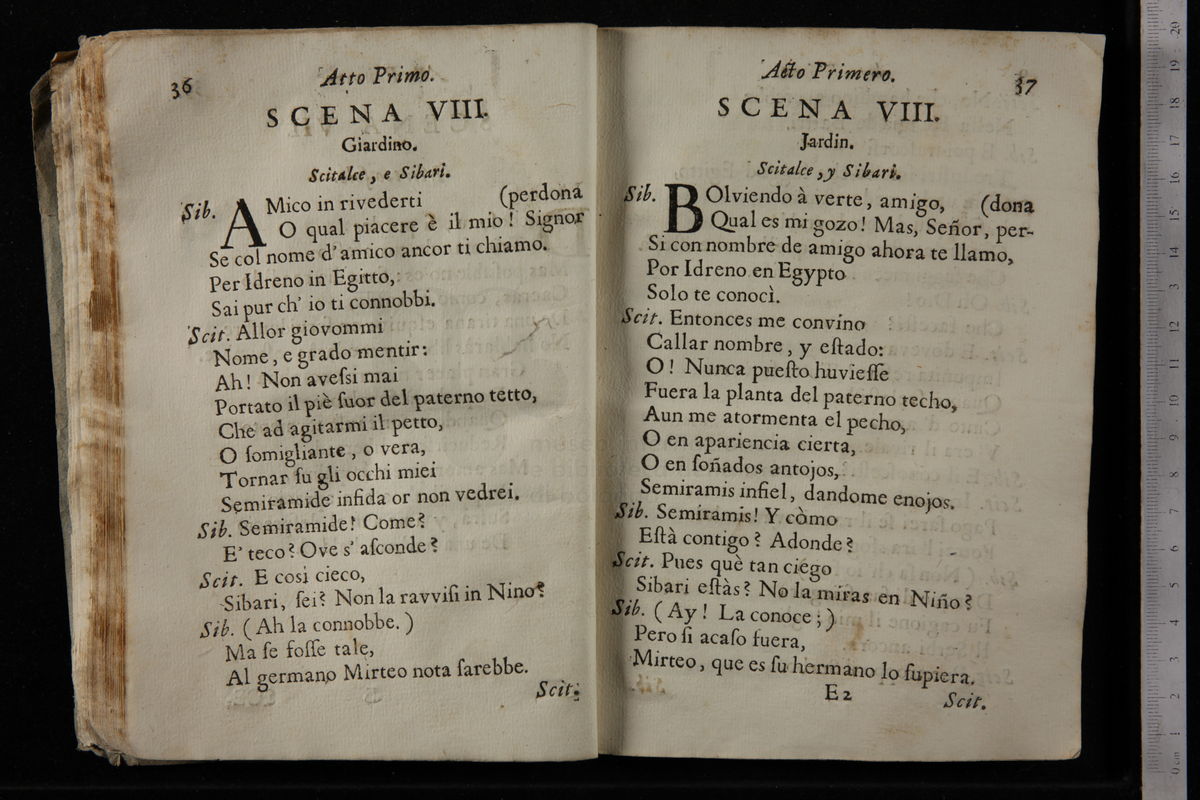 36
Atto Primo.
SCENA VIII.
Giardino.
Scitalce, e Sibari.
Sib. AMico in rivederti (perdona
O qual piacere è il mio! Signor
Se col nome d' amico ancor ti chiamo.
Per Idreno in Egitto,
Sai pur ch' io ti connobbi.
Scit. Allor giovommi
Nome, e grado mentir:
Ah! Non avessi mai
Portato il piè fuor del paterno tetto,
Che ad agitarmi il petto,
O somigliante, o vera,
Tornar su gli occhi miei
Semiramide infida or non vedrei.
Sib. Semiramide! Come?
E' teco? Ove s' asconde?
Scit. E così cieco,
Sibari, sei? Non la ravvisi in Nino?
Sib. (Ah la connobbe.)
Ma se fosse tale,
Al germano Mirteo nota sarebbe.
Scit.
Acto Primero.
37
SCENA VIII.
Jardin.
Scitalce, y Sibari.
Sib. BOlviendo à verte, amigo, (dona
Qual es mi gozo! Mas, Señor, per-
Si con nombre de amigo ahora te llamo,
Por Idreno en Egypto
Solo te conocì.
Scit. Entonces me convino
Callar nombre, y estado:
O! Nunca puesto huviesse
Fuera la planta del paterno techo,
Aun me atormenta el pecho,
O en apariencia cierta,
O en soñados antojos,
Semiramis infiel, dandome enojos.
Sib. Semiramis! Y còmo
Està contigo? Adonde?
Scit. Pues què tan ciego
Sibari estàs? No la miras en Niño?
Sib. (Ay! La conoce;)
Pero si acaso fuera,
Mirteo, que es su hermano lo supiera.
E2
Scit.